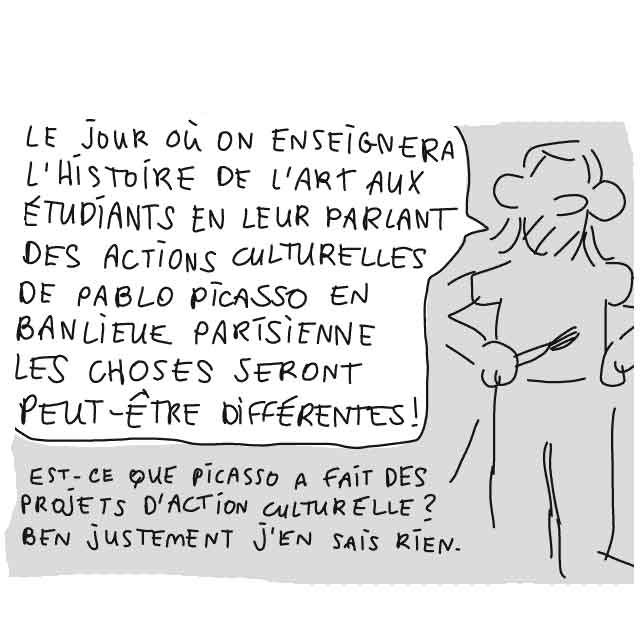 LE JOUR OÙ ON ENSEIGNERA
L'HISTOIRE DE L'ART AUX
ÉTUDIANTS EN LEUR PARLANT
DES ACTIONS CULTURELLES
DE PABLO PICASSO EN
BANLIEUE PARISIENNE
LES CHOSES SERONT
PEUT-ÊTRE DIFFÉRENTES!
EST-CE QUE PICASSO A FAIT DES
PROJETS D'ACTION CULTURELLE?
BEN JUSTEMENT J'EN SAIS RIEN.